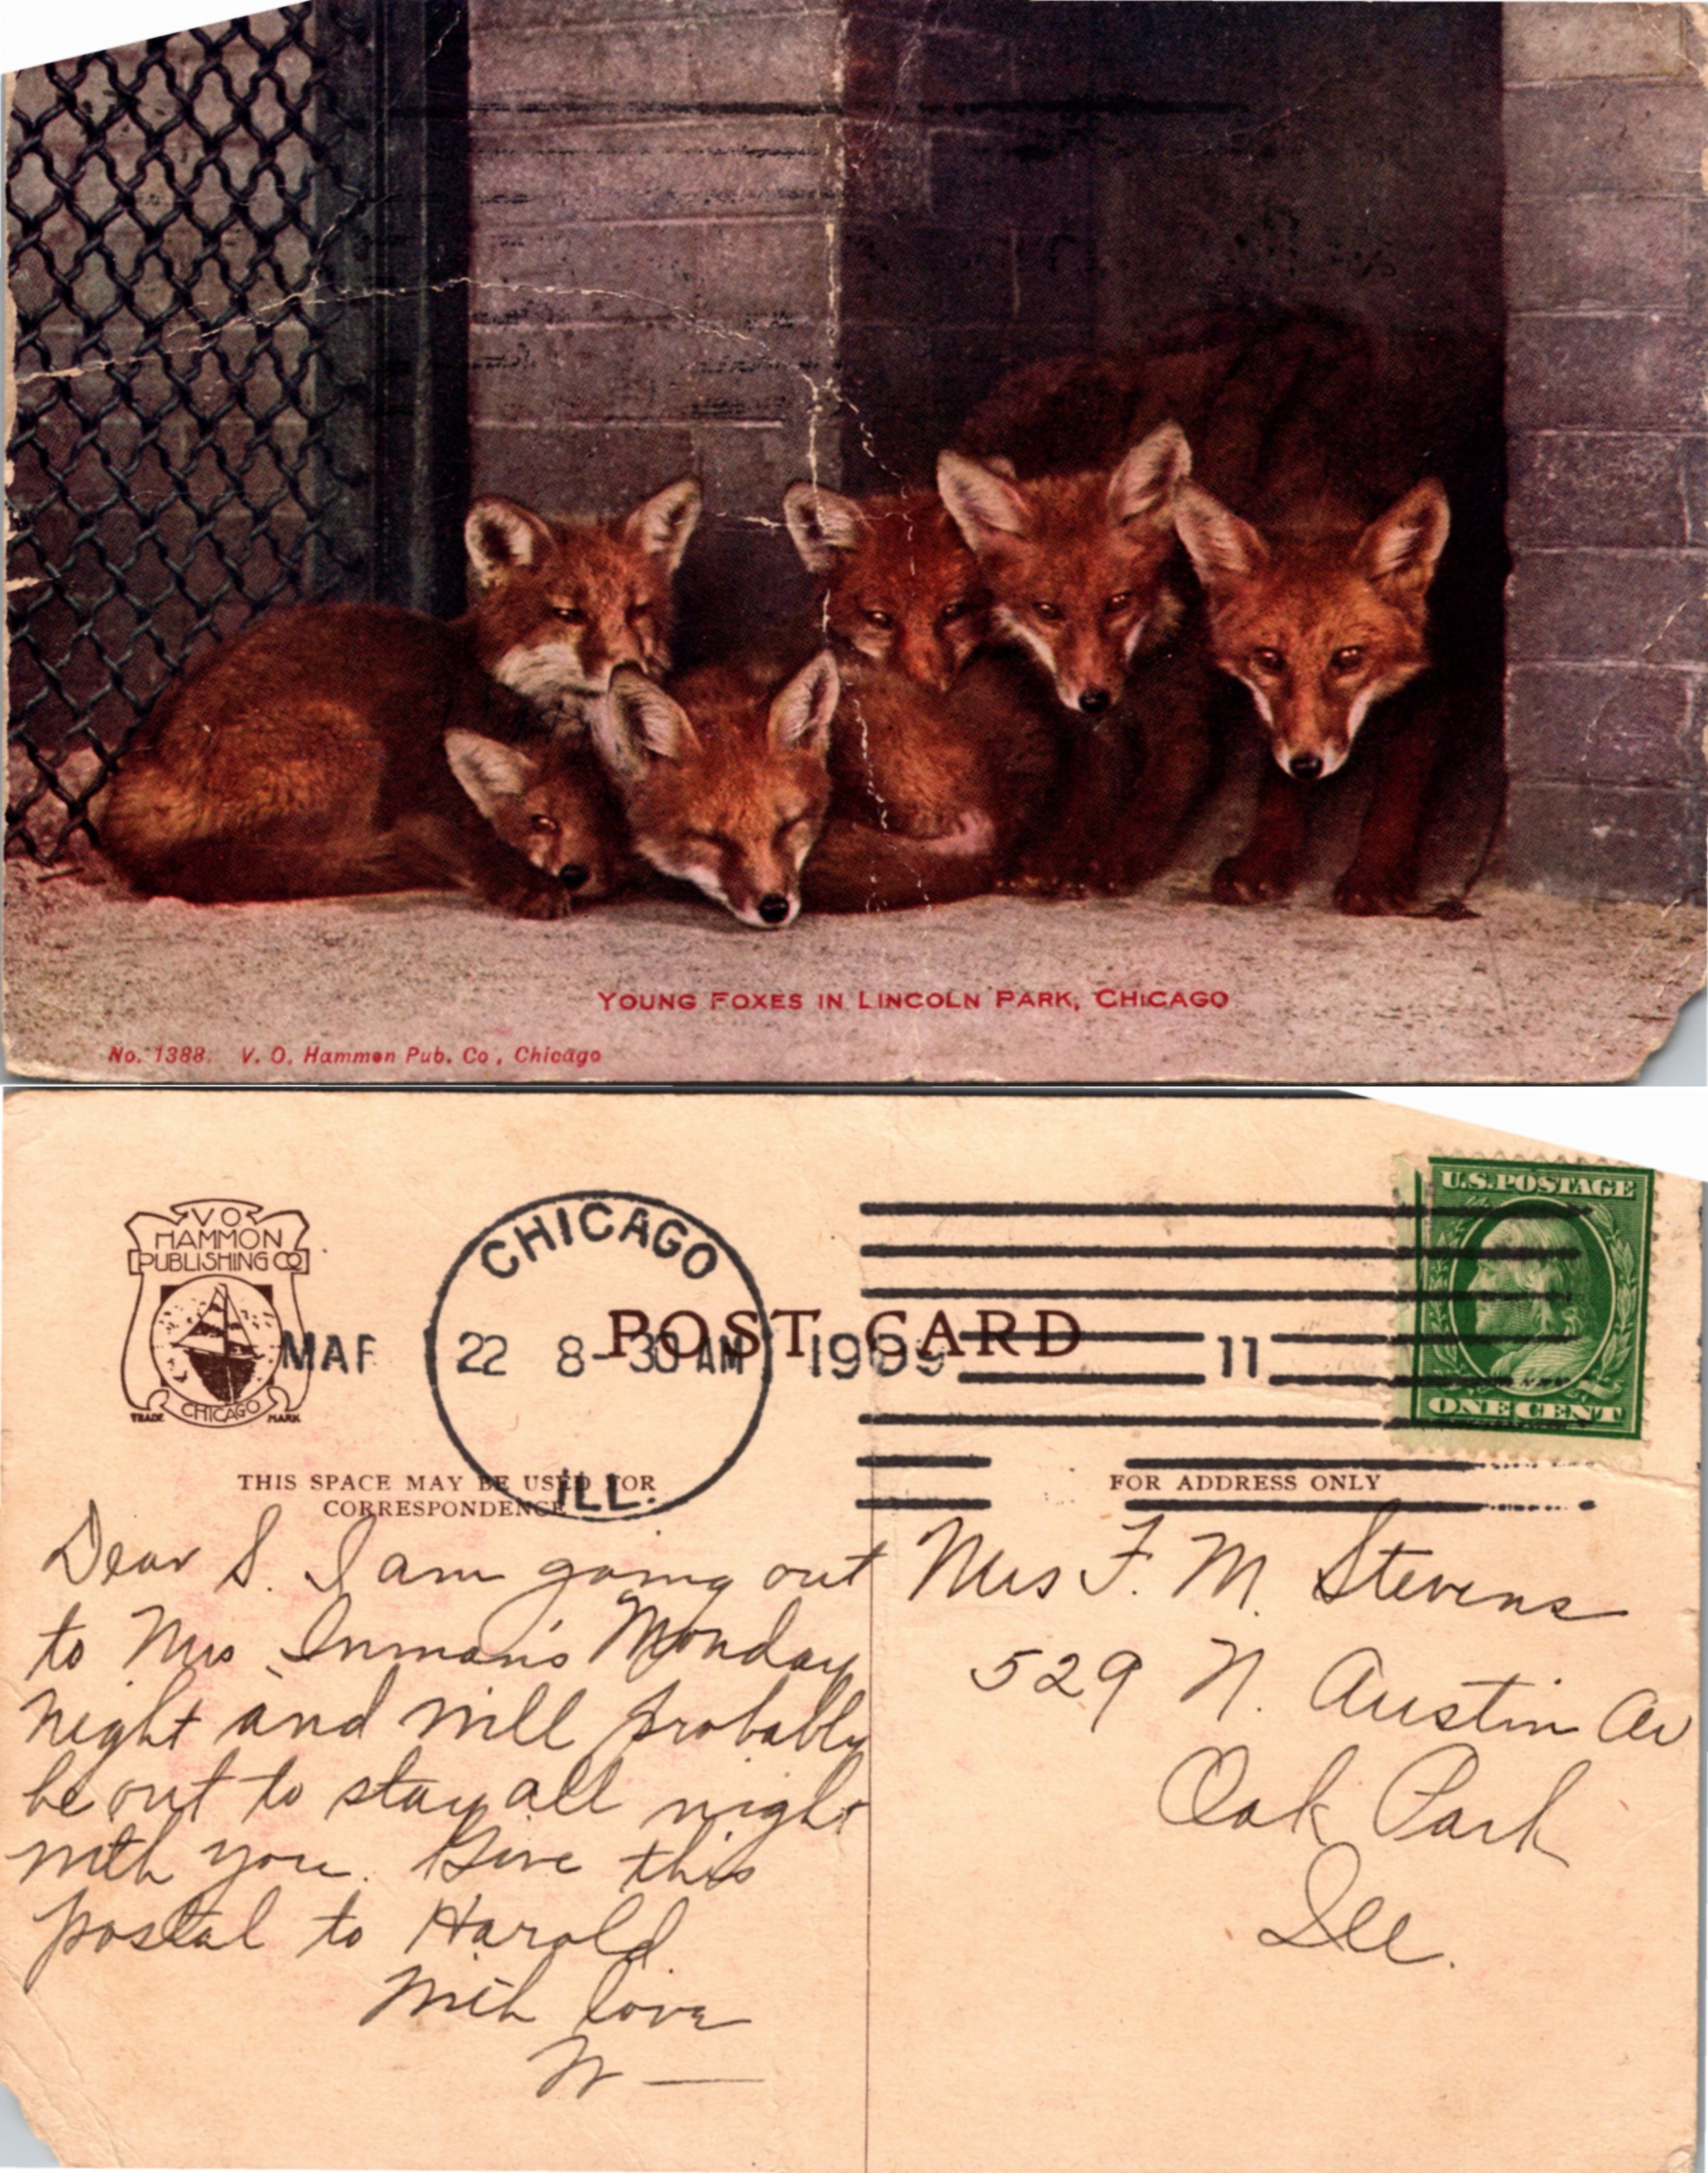 YOUNG FOXES IN LINCOLN PARK, CHICAGO
No. 1388. V. O. Hammon Pub. Co., Chicago
V O
HAMMON
PUBLISHING CO
TRADE CHICAGO MARK
CHICAGO
MAR 22 8-30 AM 1909 11
ILL.
POST CARD
U.S. POSTAGE
ONE CENT
THIS SPACE MAY BE USED FOR
CORRESPONDENCE
FOR ADDRESS ONLY
Dear S. I am going out
to Mrs Inman's Monday
night and will probably
be out to stay all night
with you. Give this
postal to Harold
With love
W —
Mrs F. M. Stevens
529 N. Austin Av
Oak Park
Ill.